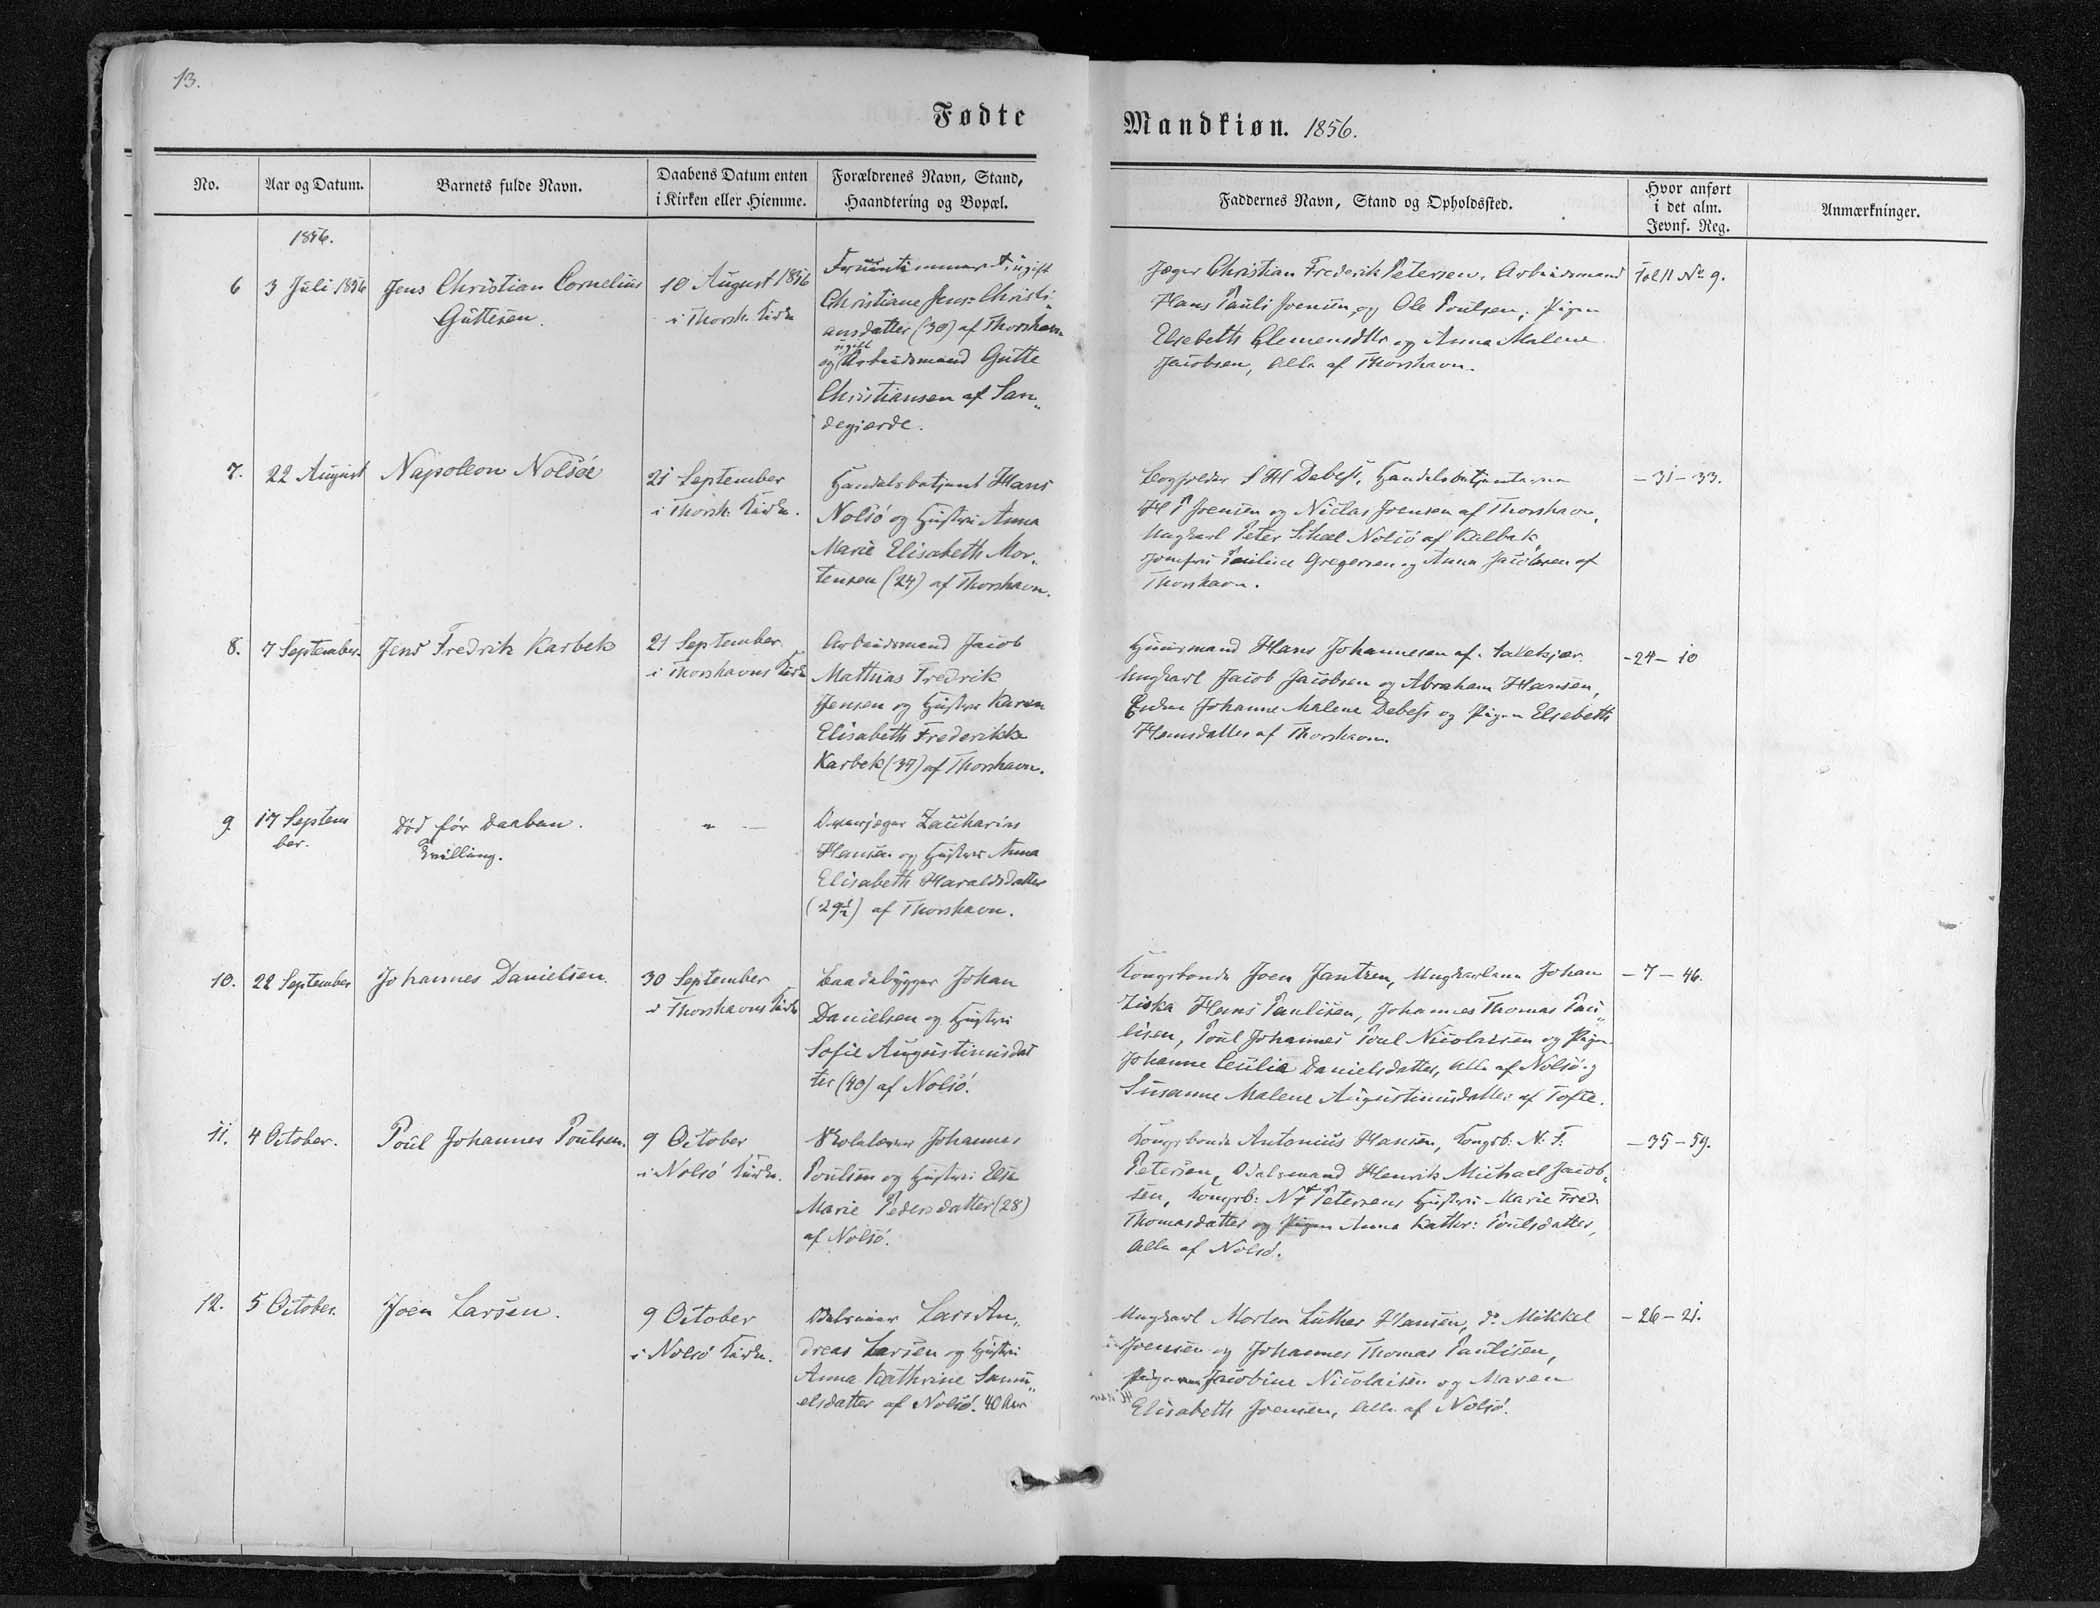 13.
Fødte
Mandkiøn. 1856.
No.
Aar og Datum.
Barnets fulde Navn.
Daabens Datum enten
i Kirken eller Hiemme.
Forældrenes Navn, Stand,
Haandtering og Bopæl.
Faddernes Navn, Stand og Opholdssted.
Hvor anført
i det alm.
Jevnf. Reg.
Anmærkninger.
1856.
6
3 Juli 1856
Jens Christian Cornelius
Guttesen.
10 August 1856
i Thorsh. Kirke
Fruentimmeret, ugift
Christiane Jens Christi-
ansdatter (30) af Thorshavn
ugift
og Arbeidsmand Gutte
Christiansen af San-
degjerde.
Jæger Christian Frederik Petersen, Arbeidsmand
Hans Pauli Joensen og Ole Poulsen, Pigen
Elsebeth Clemensdttr og Anna Malene
Jacobsen, alle af Thorshavn.
Fol 11 No 9.
7.
22 August
Napoleon Nolsöe
21 September
i Thorsh: Kirke.
Handelsbetjent Hans
Nolsö og Hustru Anna
Marie Elisabeth Mor-
tensen (24) af Thorshavn.
S H Debess, Handelsbetjenterne
H P Joensen og Niclas Joensen af Thorshavn,
Ungkarl Peter Nolsö af Kalbak,
Jomfru Pauline Gregersen og Anna Jacobsen af
Thorshavn.
- 31 - 33.
8.
7 September.
Jens Fredrik Karbek
21 September
i Thorshavns Kirke
Arbeidsmand Jacob
Mathias Fredrik
Jensen og Hustru Karen
Elisabeth Frederikke
Karbek (37) af Thorshavn.
Huusmand Hans Johannesen af
Ungkarl Jacob Jacobsen og Abraham Hansen,
Enken Johanne Malene Debess og Pigen Elsebeth
Hansdatter af Thorshavn.
- 24 - 10
9.
17 Septem
ber.
Död för Daaben.
Tvilling.
" —
Zacharias
Hansen og Hustru Anna
Elisabeth Haraldsdatter
(29½) af Thorshavn.
10.
22 September
Johannes Danielsen.
30 September
i Thorshavns Kirke
Baadebygger Johan
Danielsen og Hustru
Sofie Augustinusdat
ter (40) af Nolsö.
Kongsbonde Joen Jantzen, Ungkarlene Johan
Ziska Hans Paulisen, Johannes Thomas Pau-
lisen, Poul Johannes Poul Nicolaisen og Pigen
Johanne Cecilia Danielsdatter, alle af Nolsö og
Susanne Malene Augustinusdatter af Tofte.
- 7 - 46.
11.
4 October.
Poul Johannes Poulsen.
9 October
i Nolsö Kirke.
Skolelærer Johannes
Poulsen og Hustru Else
Marie Pedersdatter (28)
af Nolsö.
Kongsbonde Antonius Hansen, Kongsb: N: F:
Petersen, Odelsmand Henrik Michael Jacob-
sen, Kongsb: N F Petersens Hustru Marie Fred:
Thomasdatter og Pigen Anna Kathr: Poulsdatter,
alle af Nolsö.
- 35 - 59.
12.
5 October.
Joen Larsen.
9 October
i Nolsö Kirke.
Lars An-
dreas Larsen og Hustru
Anna Kathrine Samu-
elsdatter af Nolsö. 40 Aar
Ungkarl Morten Luther Hansen, do Mikkel
Joensen og Johannes Thomas Paulisen,
Pigerne Jacobine Nicolaisen og Maren
Elisabeth Joensen, alle af Nolsö.
- 26 - 21.